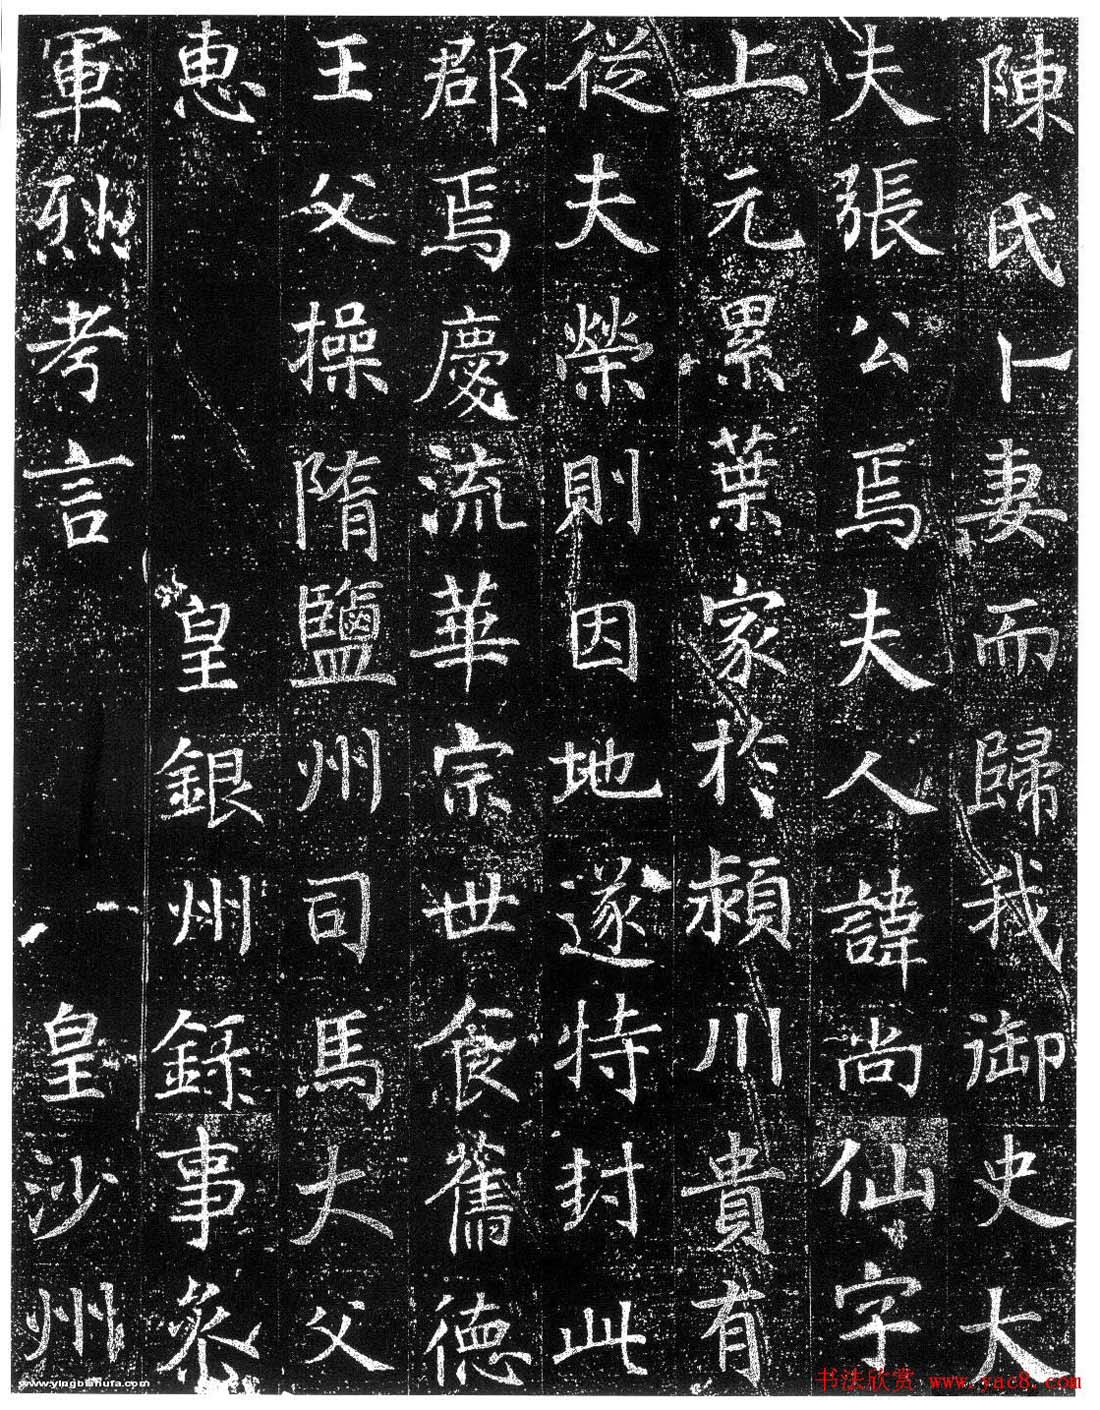 陳氏卜妻而歸我御史大
夫張公焉夫人諱尚仙字
上元累葉家於潁川貴有
從夫榮則因地遂特封此
郡焉慶流華宗世食舊德
王父操隋鹽州司馬大父
惠 皇銀州錄事叅
軍烈考言 皇沙州
www.yingbishufa.com
书法欣赏 www.yac8.com